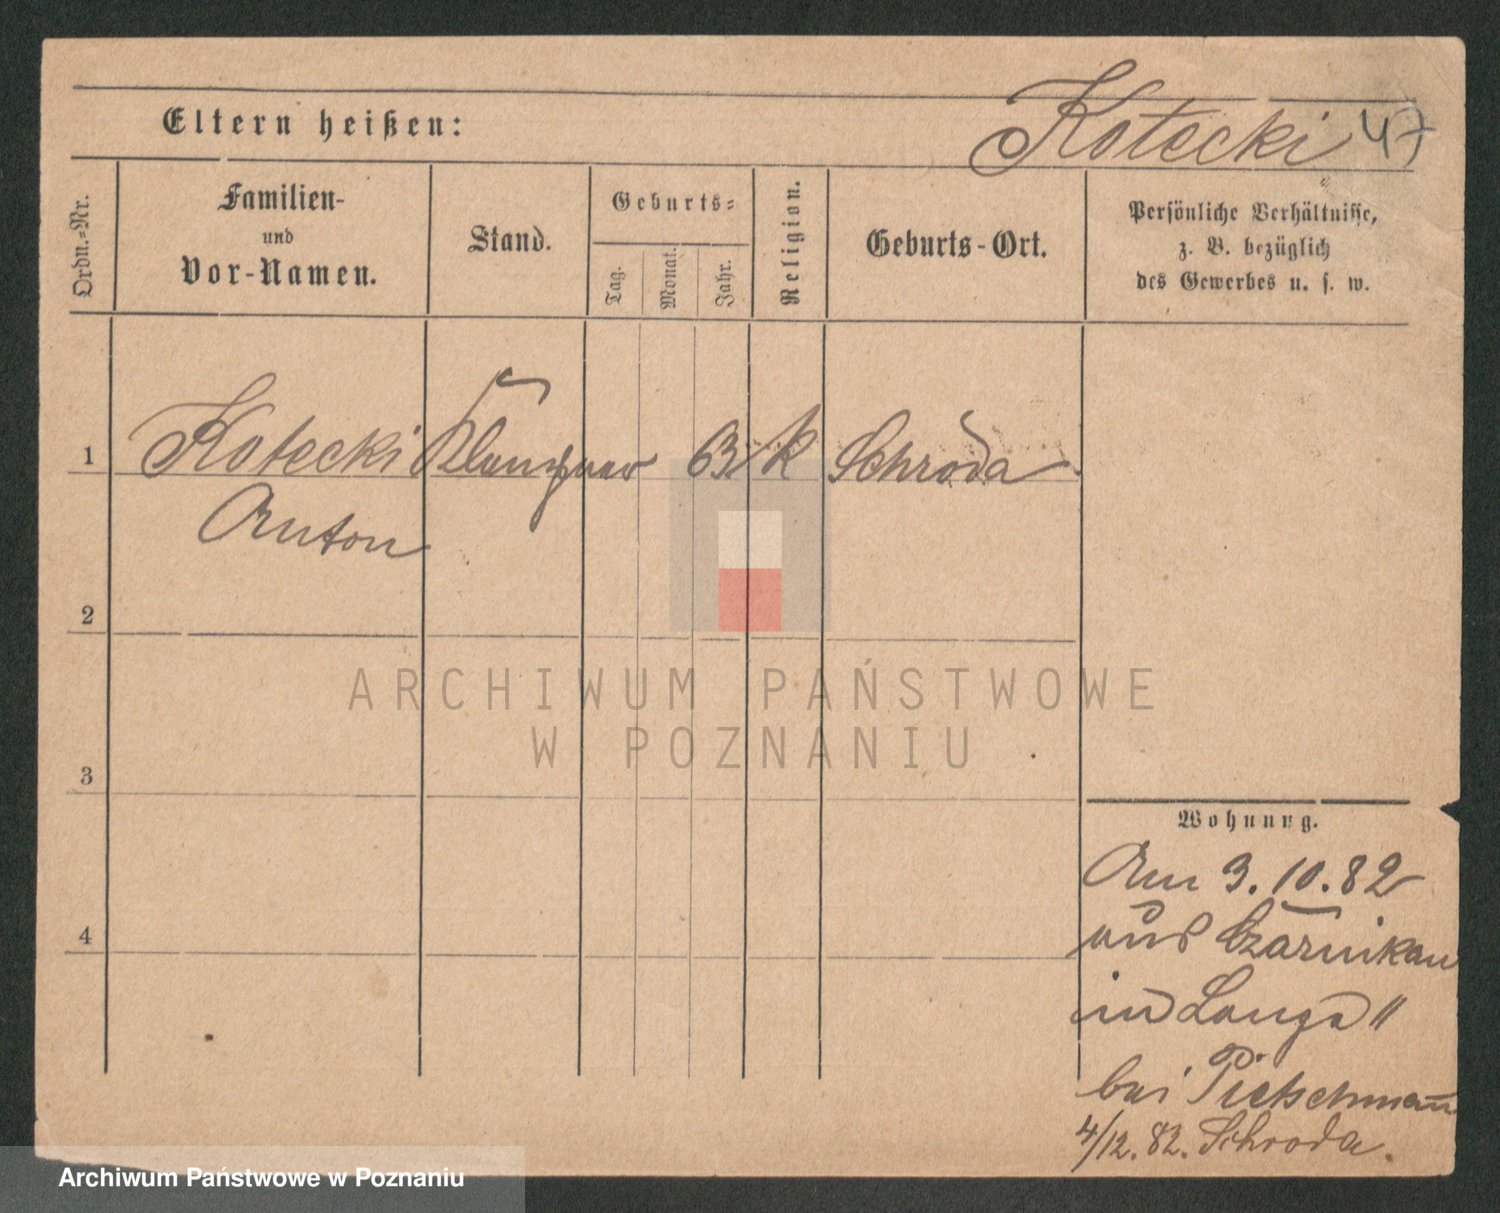 Kotecki 47
Eltern heißen:
Ordn.=Nr.
Familien-
und
Vor-Namen.
Stand.
Geburts=
Tag.
Monat.
Jahr.
Religion.
Geburts-Ort.
Persönliche Verhältnisse,
z. B. bezüglich
des Gewerbes u. s. w.
1 Kotecki Klempner 63 k Schroda
Anton
2
3
4
Wohnung.
Am 3.10.82
aus Czarnikau
in Lange 11
bei Pietschmann
4/12.82. Schroda.
ARCHIWUM PAŃSTWOWE
W POZNANIU
Archiwum Państwowe w Poznaniu